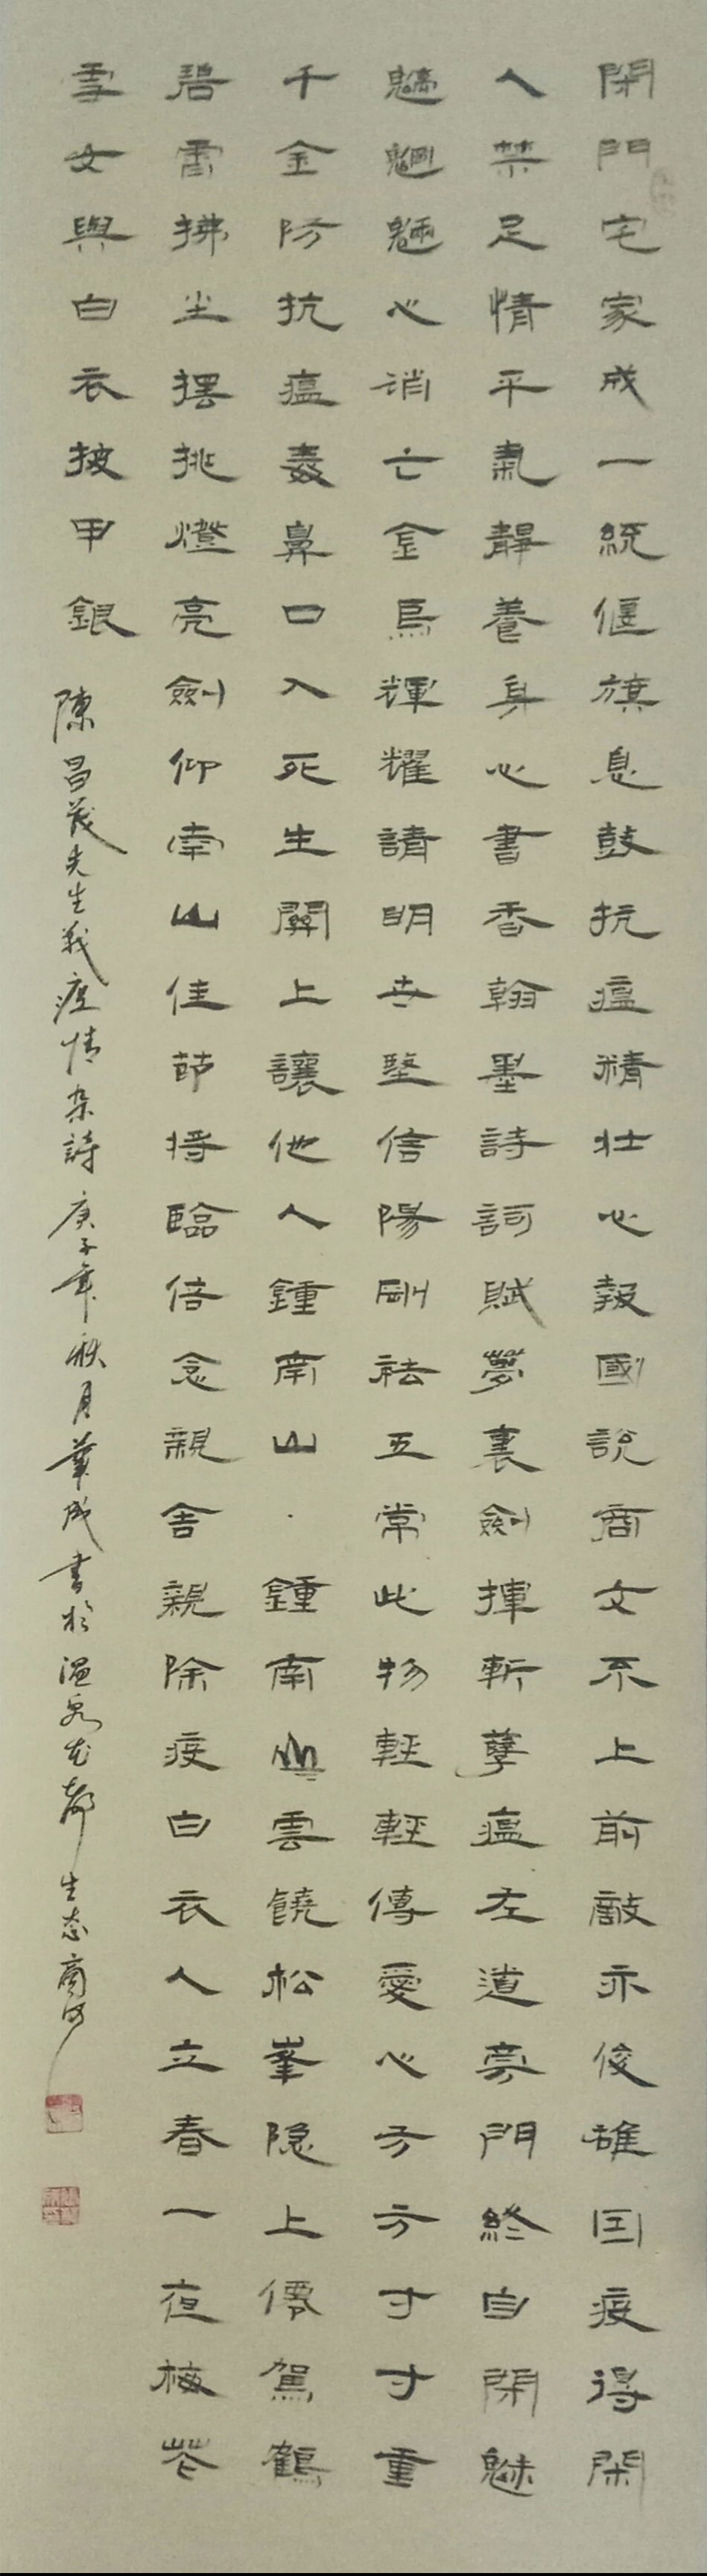 閉門宅家成一統偃旗息鼓抗瘟精壯心報國說商文不上前敵亦俊雄囯疫得閑
人禁足情平氣靜養身心書香翰墨詩詞賦夢裏劍揮斬孽瘟左道旁門終自閉魅
魑魍魎心消亡金烏輝耀請明世堅信陽剛祛五常此物輕輕傳愛心方方寸寸重
千金防抗瘟毒鼻口入死生關上讓他人鍾南山·鍾南山雲饒松峯隐上僊駕鶴
碧霄拂尘摆挑燈亮劍仰南山佳節将臨倍念親舍親除疫白衣人立春一夜梅花
雪女與白衣披甲銀
陳昌茂先生我疫情杂詩 庚子年秋月華成書於温泉花都生态商河